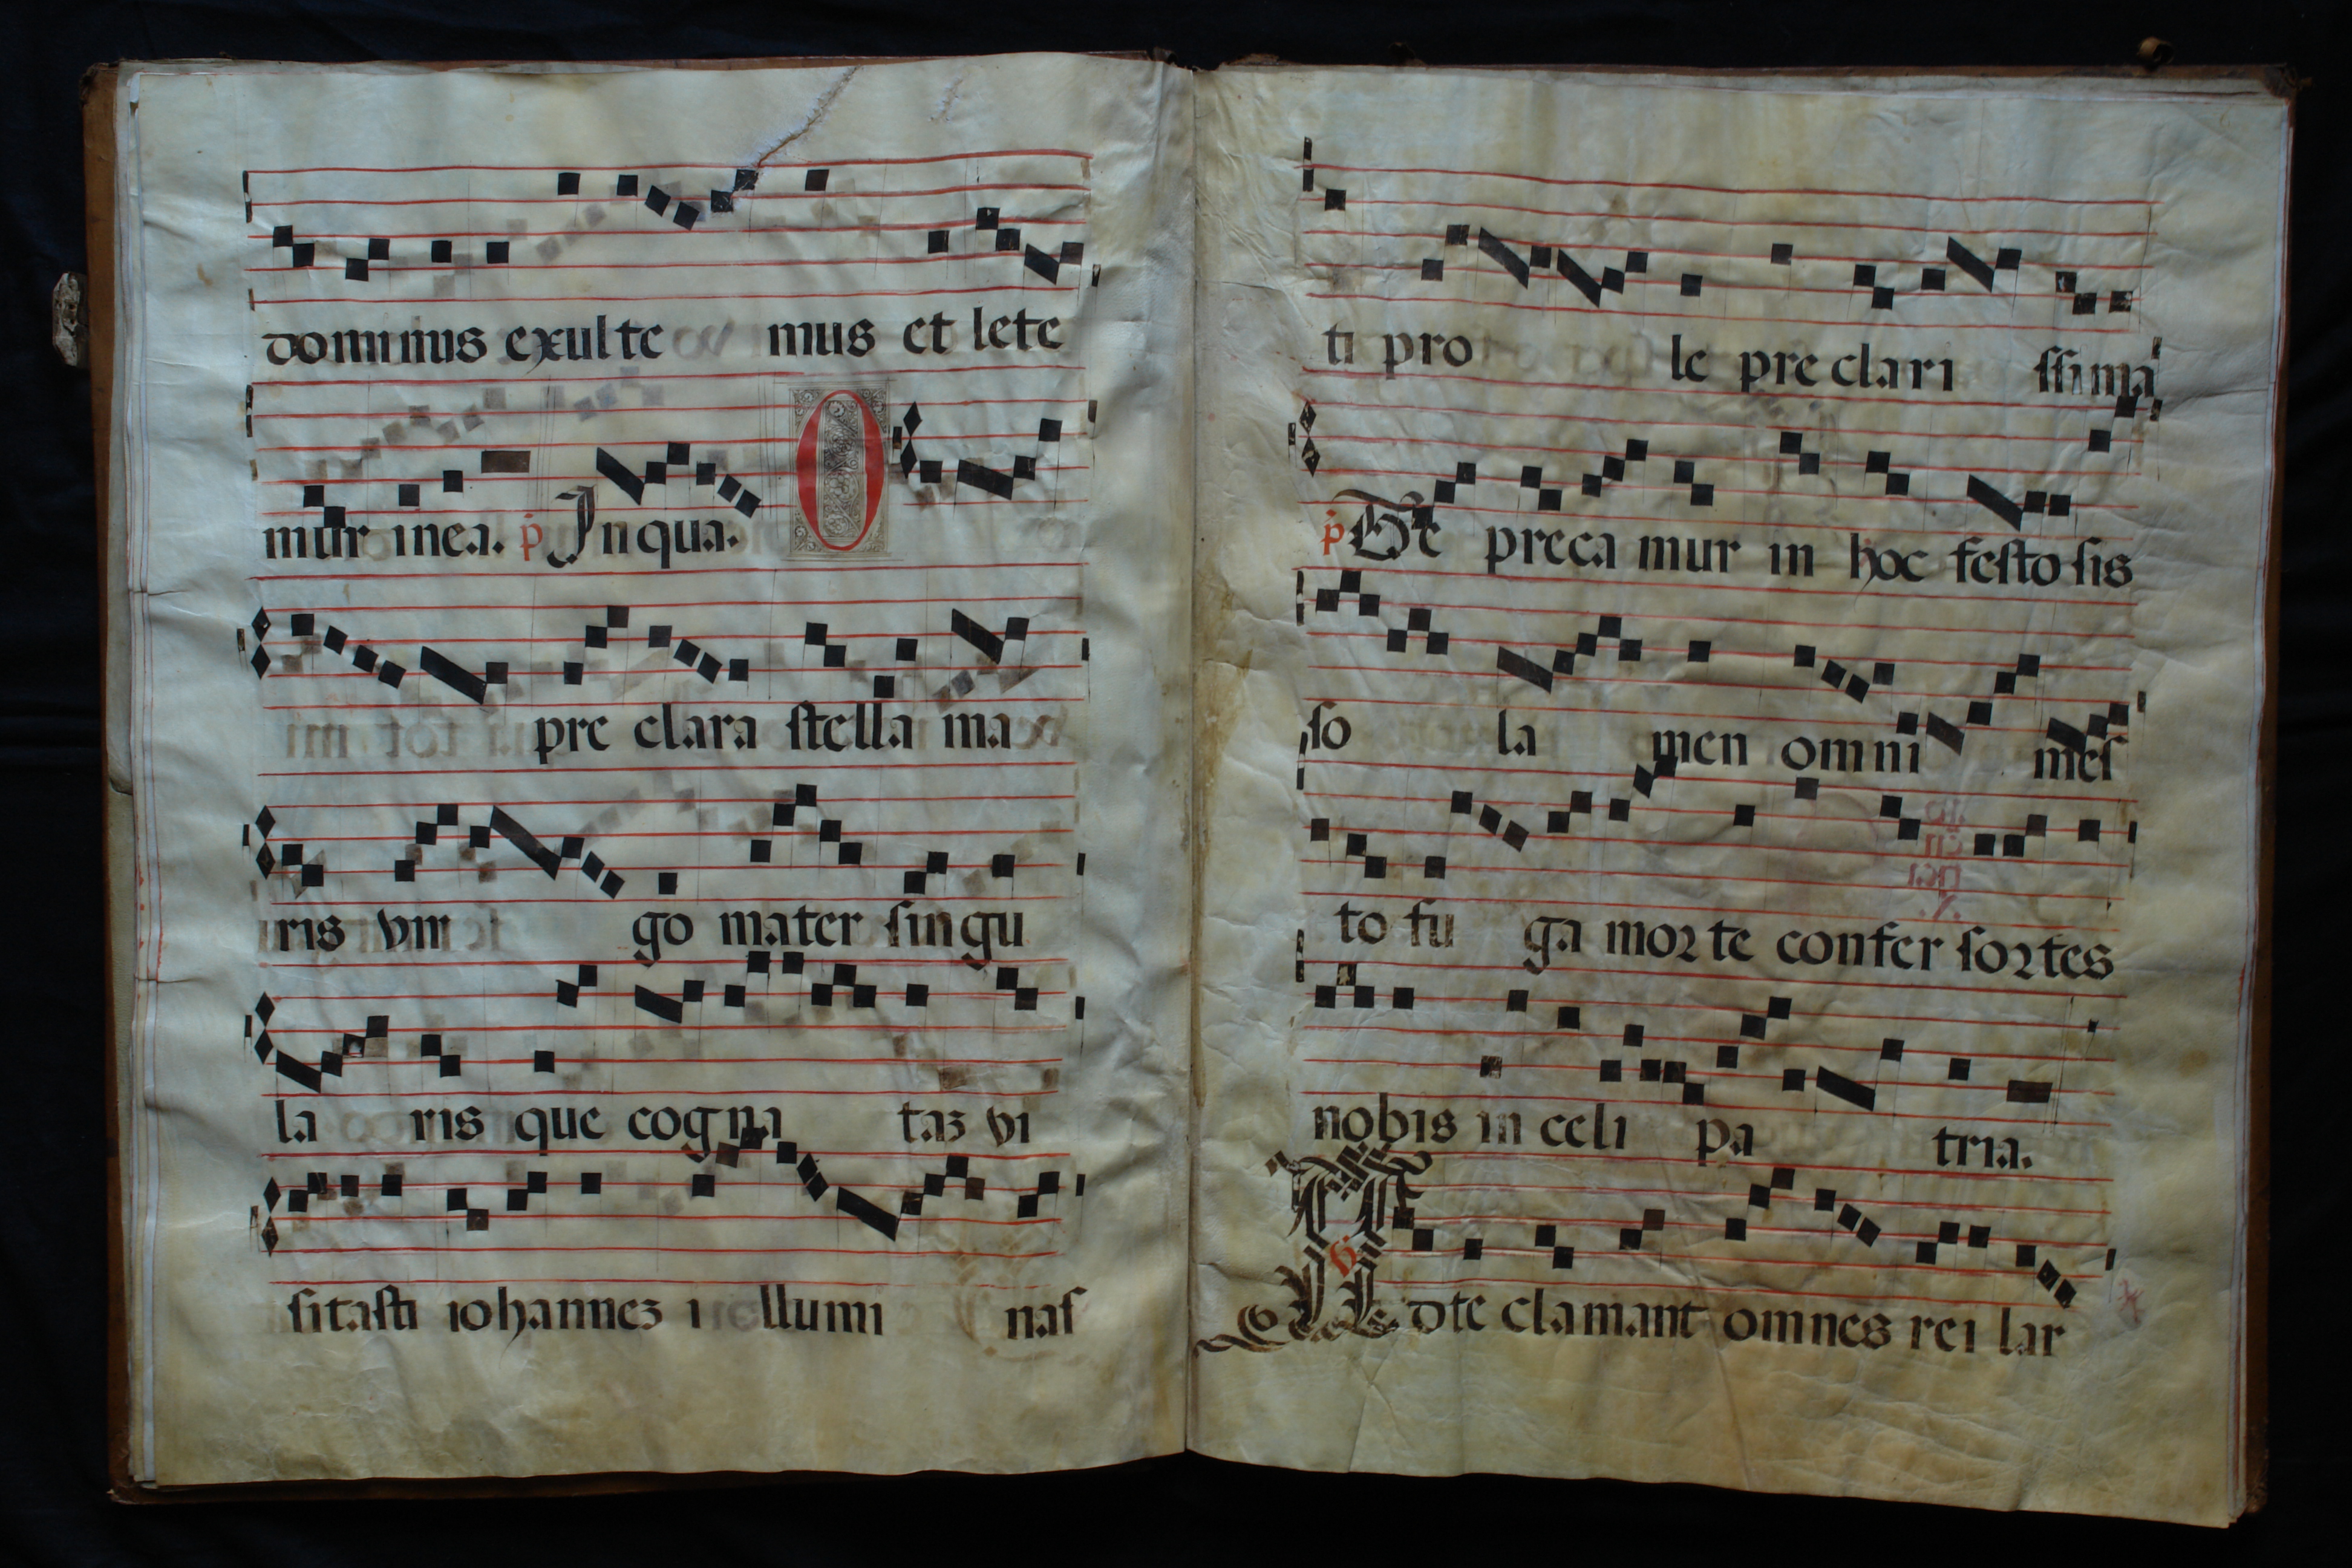 dominus exulte mus et lete
mur inea. p Inqua. O
pre clara stella ma
ris vir go mater singu
la ris que cogna taz vi
sitasti iohannez i llumi nas
ti pro le pre clari ssima
p Te preca mur in hoc festo sis
so la men omni mes
to fu ga morte confer sortes
nobis in celi pa tria.
A dte clamant omnes rei lar